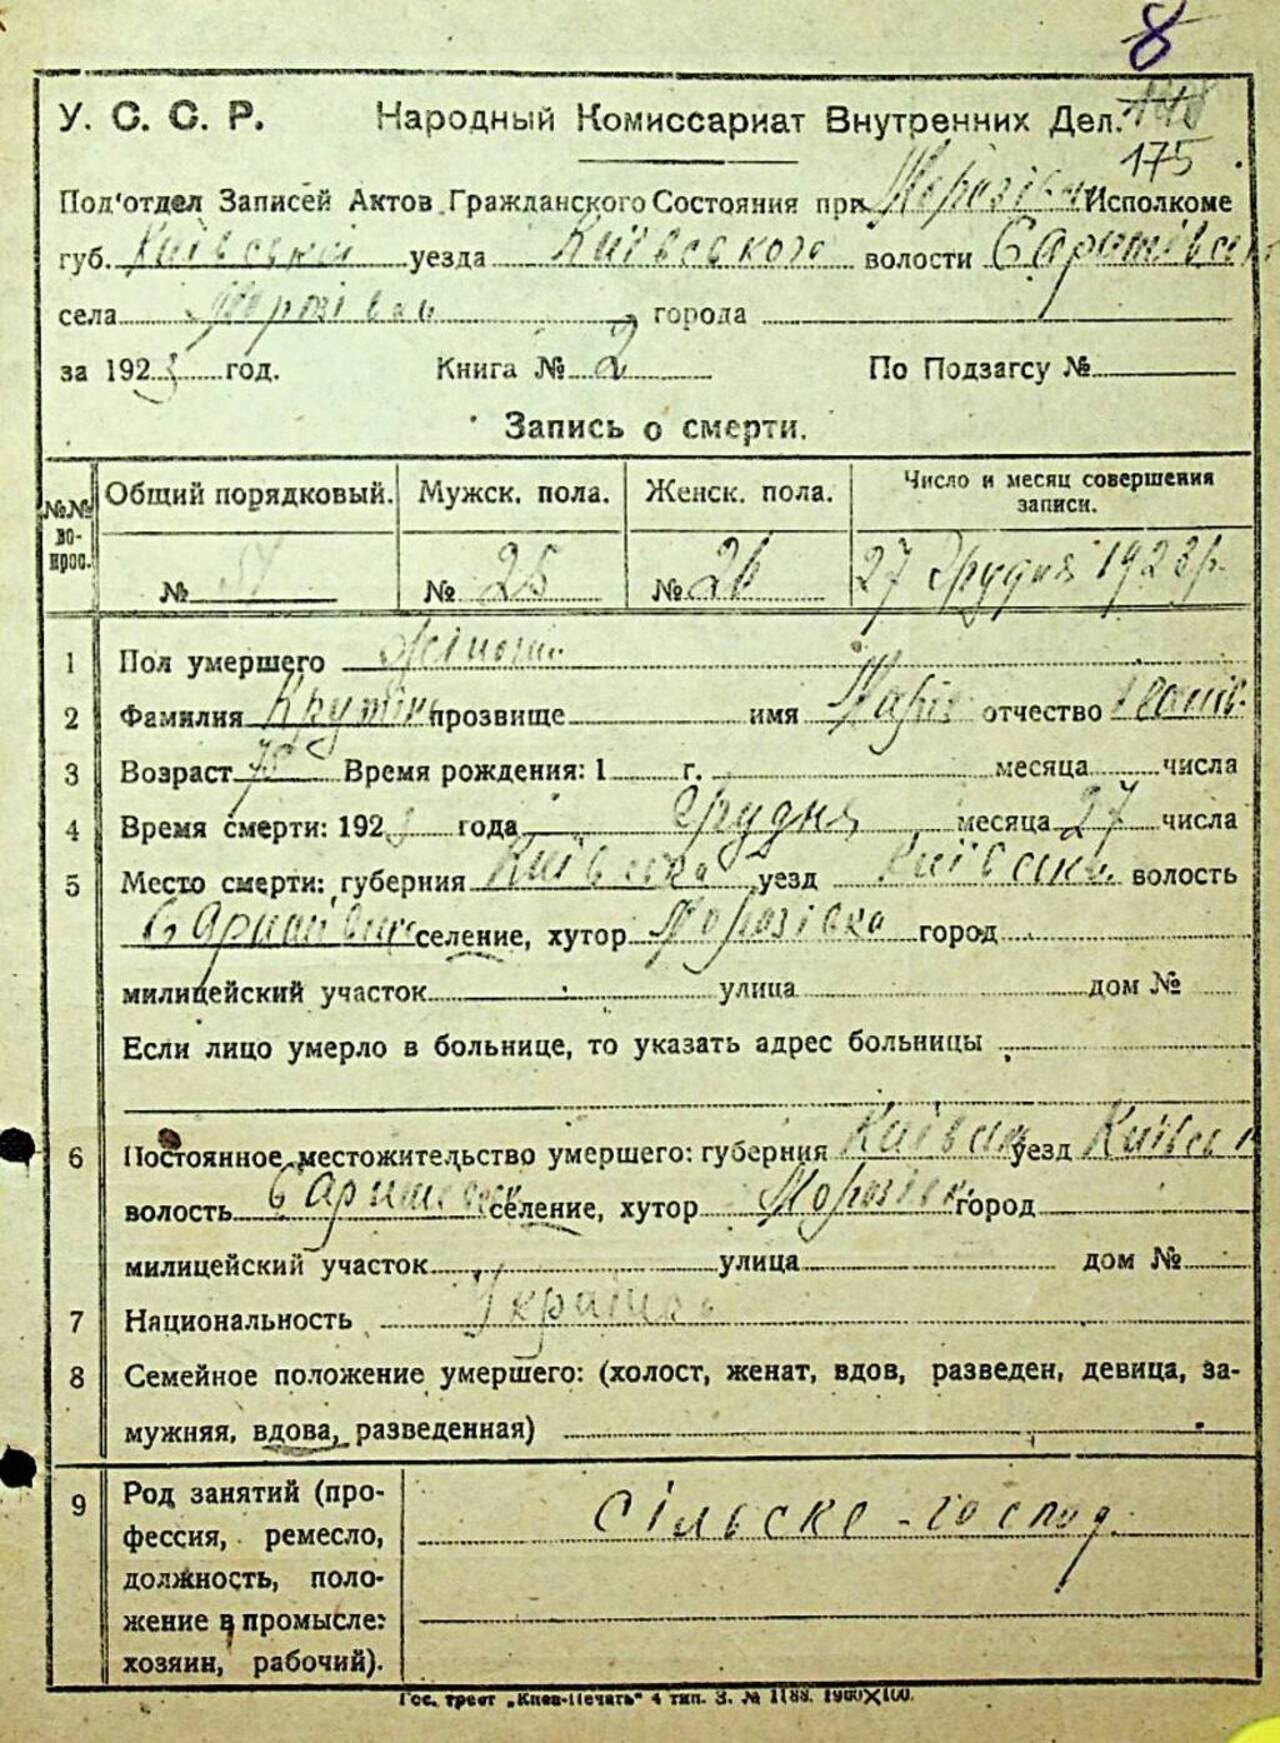 8
У. С. С. Р. Народный Комиссариат Внутренних Дел.
175
Под'отдел Записей Актов Гражданского Состояния при Исполкоме
губ. Київської уезда Київського волости
села города
за 1923 год. Книга № 2 По Подзагсу №
Запись о смерти.
№№ вопрос. Общий порядковый. Мужск. пола. Женск. пола. Число и месяц совершения записи.
№ 51 № 25 № 26 27 Грудня 1923 р.
1 Пол умершего
2 Фамилия прозвище имя Марія отчество
3 Возраст 75 Время рождения: 1 г. месяца числа
4 Время смерти: 1923 года Грудня месяца 27 числа
5 Место смерти: губерния Київська уезд волость
селение, хутор Морозівка город
милицейский участок улица дом №
Если лицо умерло в больнице, то указать адрес больницы
6 Постоянное местожительство умершего: губерния уезд
волость селение, хутор город
милицейский участок улица дом №
7 Национальность
8 Семейное положение умершего: (холост, женат, вдов, разведен, девица, за-
мужняя, вдова, разведенная)
9 Род занятий (про-
фессия, ремесло,
должность, поло-
жение в промысле:
хозяин, рабочий).
Сільске-господ.
Гос. трест „Киев-Печать" 4 тип. З. № 1188. 1900×100.